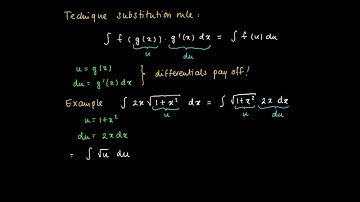 Technique substitution rule :
∫ f (g(x)) · g'(x) dx = ∫ f(u) du
u du
u = g(x)
du = g'(x) dx } differentials pay off!
Example ∫ 2x √(1+x²) dx = ∫ √(1+x²) 2x dx
u u du
u = 1+x²
du = 2x dx
= ∫ √u du